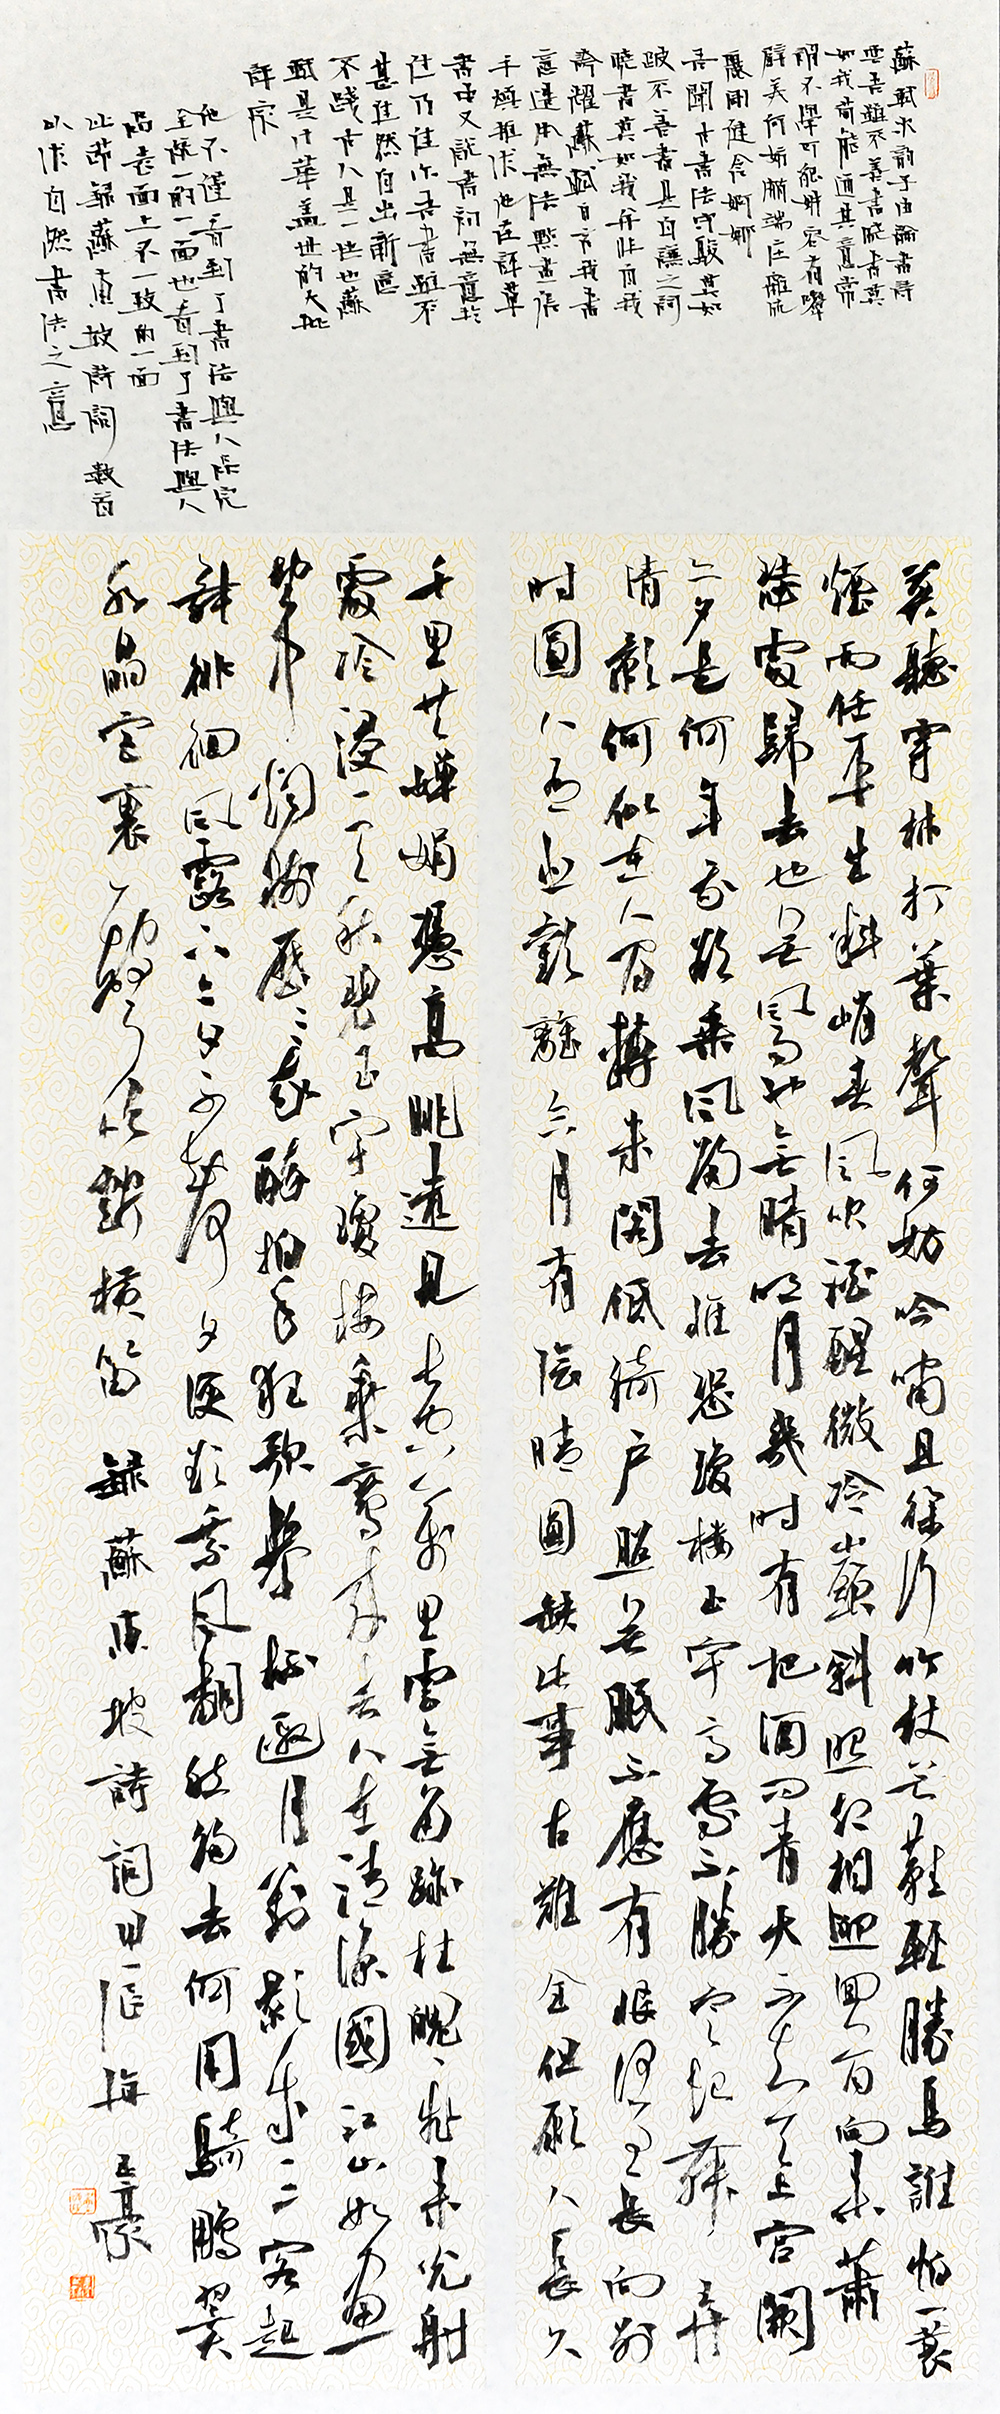 蘇軾次韵子由論書詩
云吾雖不善書曉書莫
如我苟能通其意常
謂不學可能妍容有顰
璧美何妨橢端莊雜流
麗剛健含婀娜
吾聞古書法守駿莫如
跛不善書是自謙之詞
曉書莫如我并非自我
誇耀蘇軾自言我書
意造本無法點畫信
手煩推求他在評草
書中又說書初無意於
佳乃佳尔吾書雖不
甚佳然自出新意
不踐古人是一快也蘇
軾是才華蓋世的大批
評家
他不僅看到了書法與人品完
全統一的一面也看到了書法與人
品表面上不一致的一面
此節錄蘇東坡詩詞數首
以作自然書法之意
莫聽穿林打葉聲何妨吟嘯且徐行竹杖芒鞋輕勝馬誰怕一蓑
煙雨任平生料峭春風吹酒醒微冷山頭斜照却相迎回首向來蕭
瑟處歸去也無風雨也無晴明月幾時有把酒問青天不知天上宮闕
今夕是何年我欲乘風歸去唯恐瓊樓玉宇高處不勝寒起舞弄
清影何似在人間轉朱閣低綺户照無眠不應有恨何事長向別
時圓人有悲歡離合月有陰晴圓缺此事古難全但願人長久
千里共嬋娟憑高眺遠見長空萬里雲無留跡桂魄飛來光射
處冷浸一天秋碧玉宇瓊樓乘鸞來去人在清涼國江山如畫
望中煙樹歷歷我醉拍手狂歌舉杯邀月對影成三客起
舞徘徊風露下今夕不知何夕便欲乘風翻然歸去何用騎鵬翼
水晶宮裏一聲吹斷橫笛 錄蘇東坡詩詞甲辰